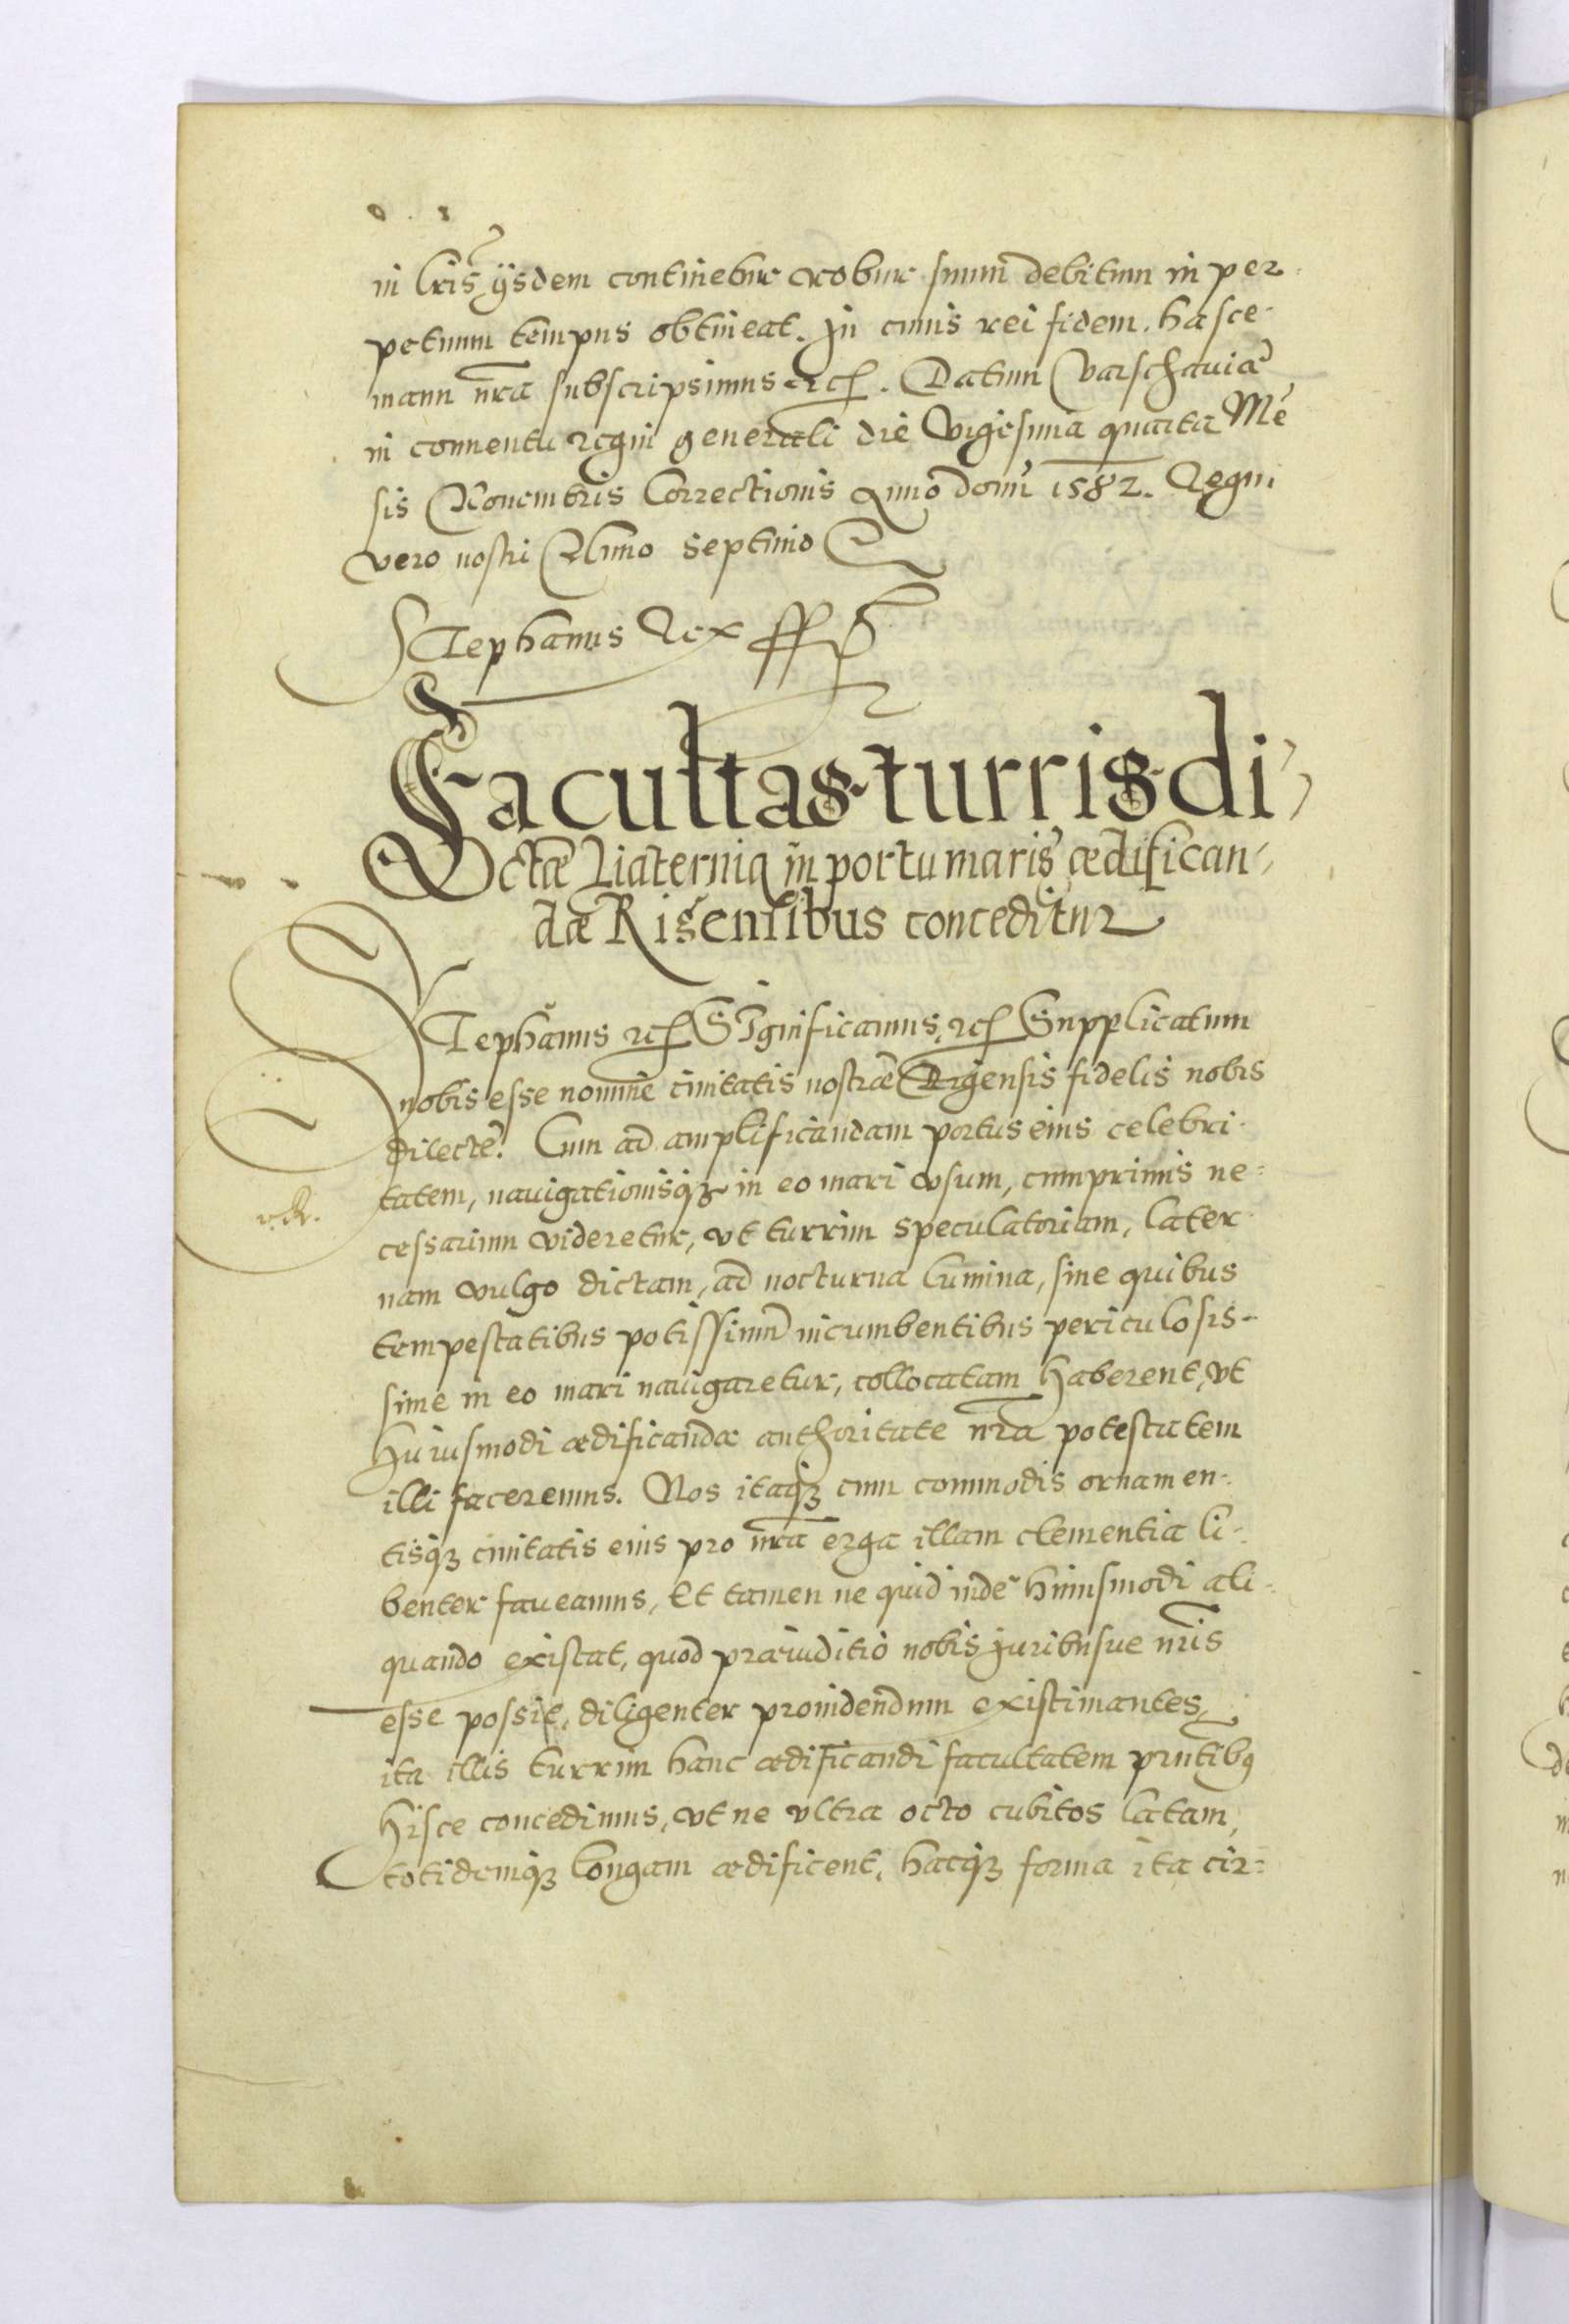 in lris ijsdem continetur robur suum debitum in per-
petuum tempus obtineat. In cuius rei fidem, hasce
manu nra subscripsimus etc. Datum Varschauiae
in conuentu regni generali die Vigesima quarta Me
sis Nouembris Correctionis Anno domi 1582. Regni
vero nostri Anno septimo
Stephanus Rex
Facultas turris di-
ctae Liaternia in portu maris aedifican-
dae Rigensibus conceditur
Stephanus etc Significamus, etc Supplicatum
nobis esse nomine ciuitatis nostrae Rigensis fidelis nobis
dilectae. Cum ad amplificandam portus eius celebri-
tatem, nauigationisqz in eo mari vsum, cumprimis ne-
cessarium videretur, vt turrim speculatoriam, later-
nam vulgo dictam, ad nocturna lumina, sine quibus
tempestatibus potissimum incumbentibus periculosis-
sime in eo mari nauigaretur, collocatam haberent, vt
huiusmodi aedificandae authoritate nra potestatem
illi faceremus. Nos itaqz cum commodis ornamen-
tisqz ciuitatis eius pro nra erga illam clementia li-
benter faueamus, Et tamen ne quid inde huiusmodi ali-
quando existat, quod praeiuditio nobis juribusue nris
esse possit, diligenter prouidendum existimantes,
ita illis turrim hanc aedificandi facultatem pntibus
hisce concedimus, vt ne vltra octo cubitos latam,
totidemqz longam aedificent, hacqz forma ita cir-